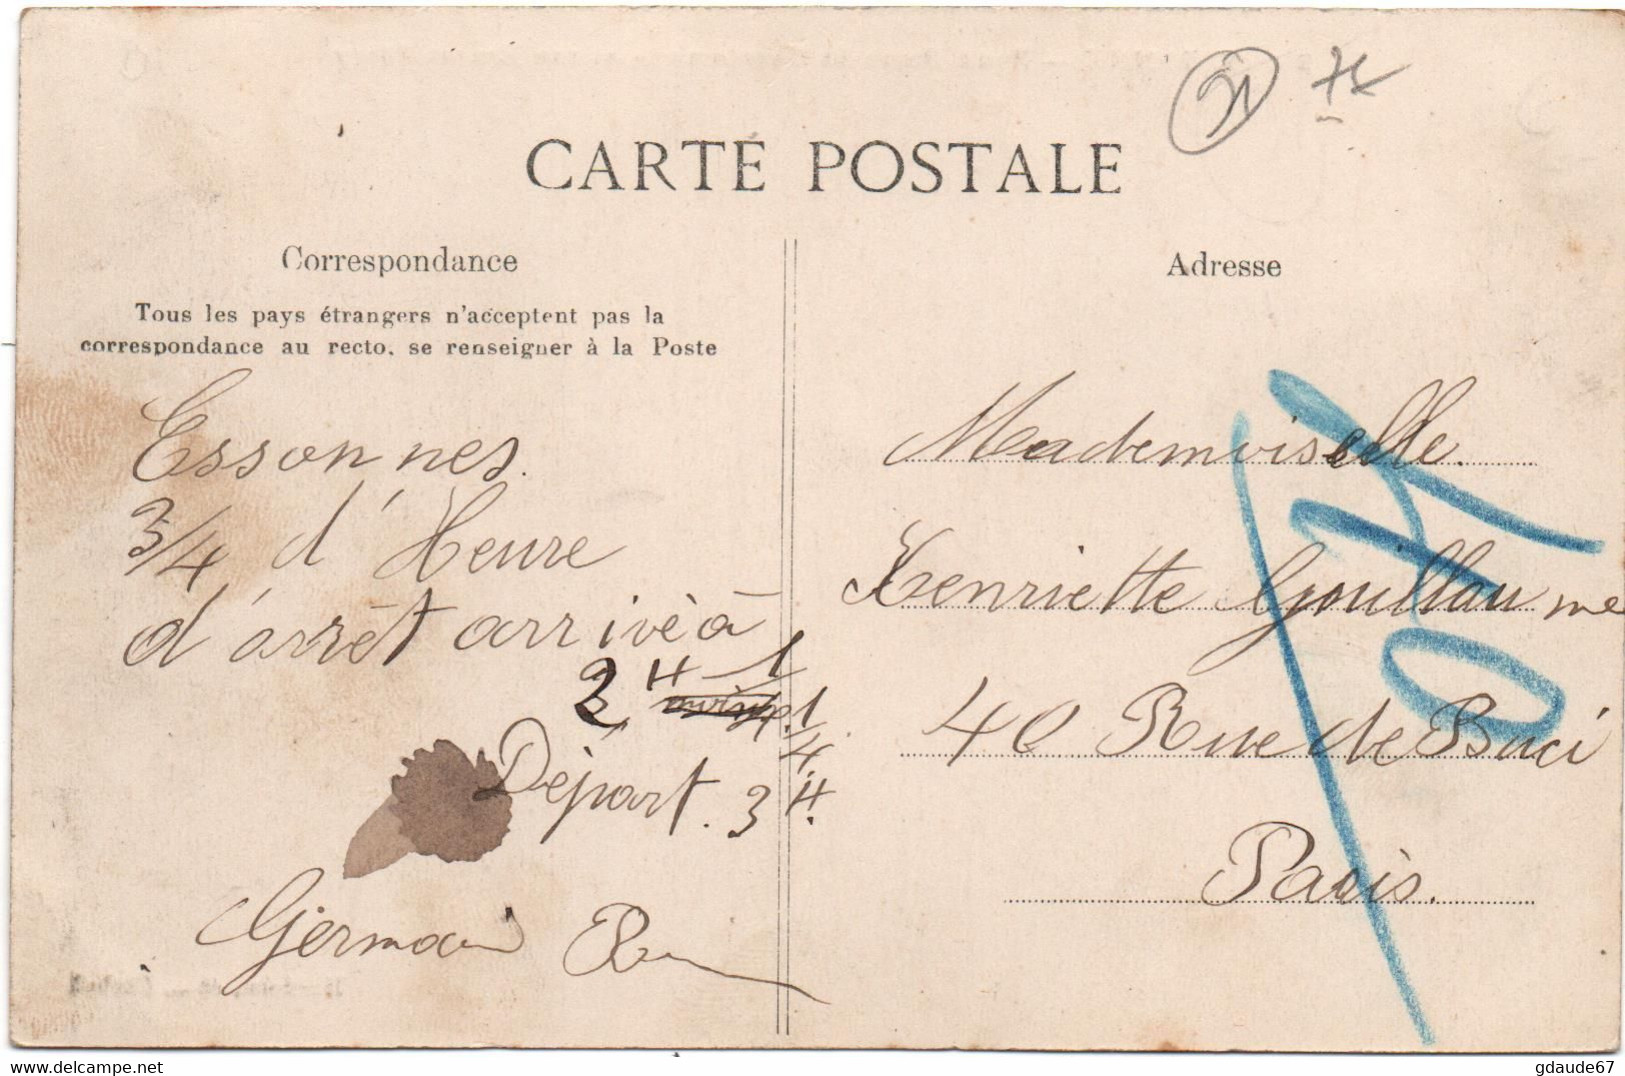 CARTE POSTALE
Correspondance
Tous les pays étrangers n'acceptent pas la
correspondance au recto, se renseigner à la Poste
Essonnes.
3/4 d'Heure
d'arrêt arrivè à
2 H 1
1/4
Départ. 3 H.
Germain
Adresse
Mademoiselle
Henriette Gouillaume
40 Rue de Buci
Paris.
Delcampe.net
gdaude67